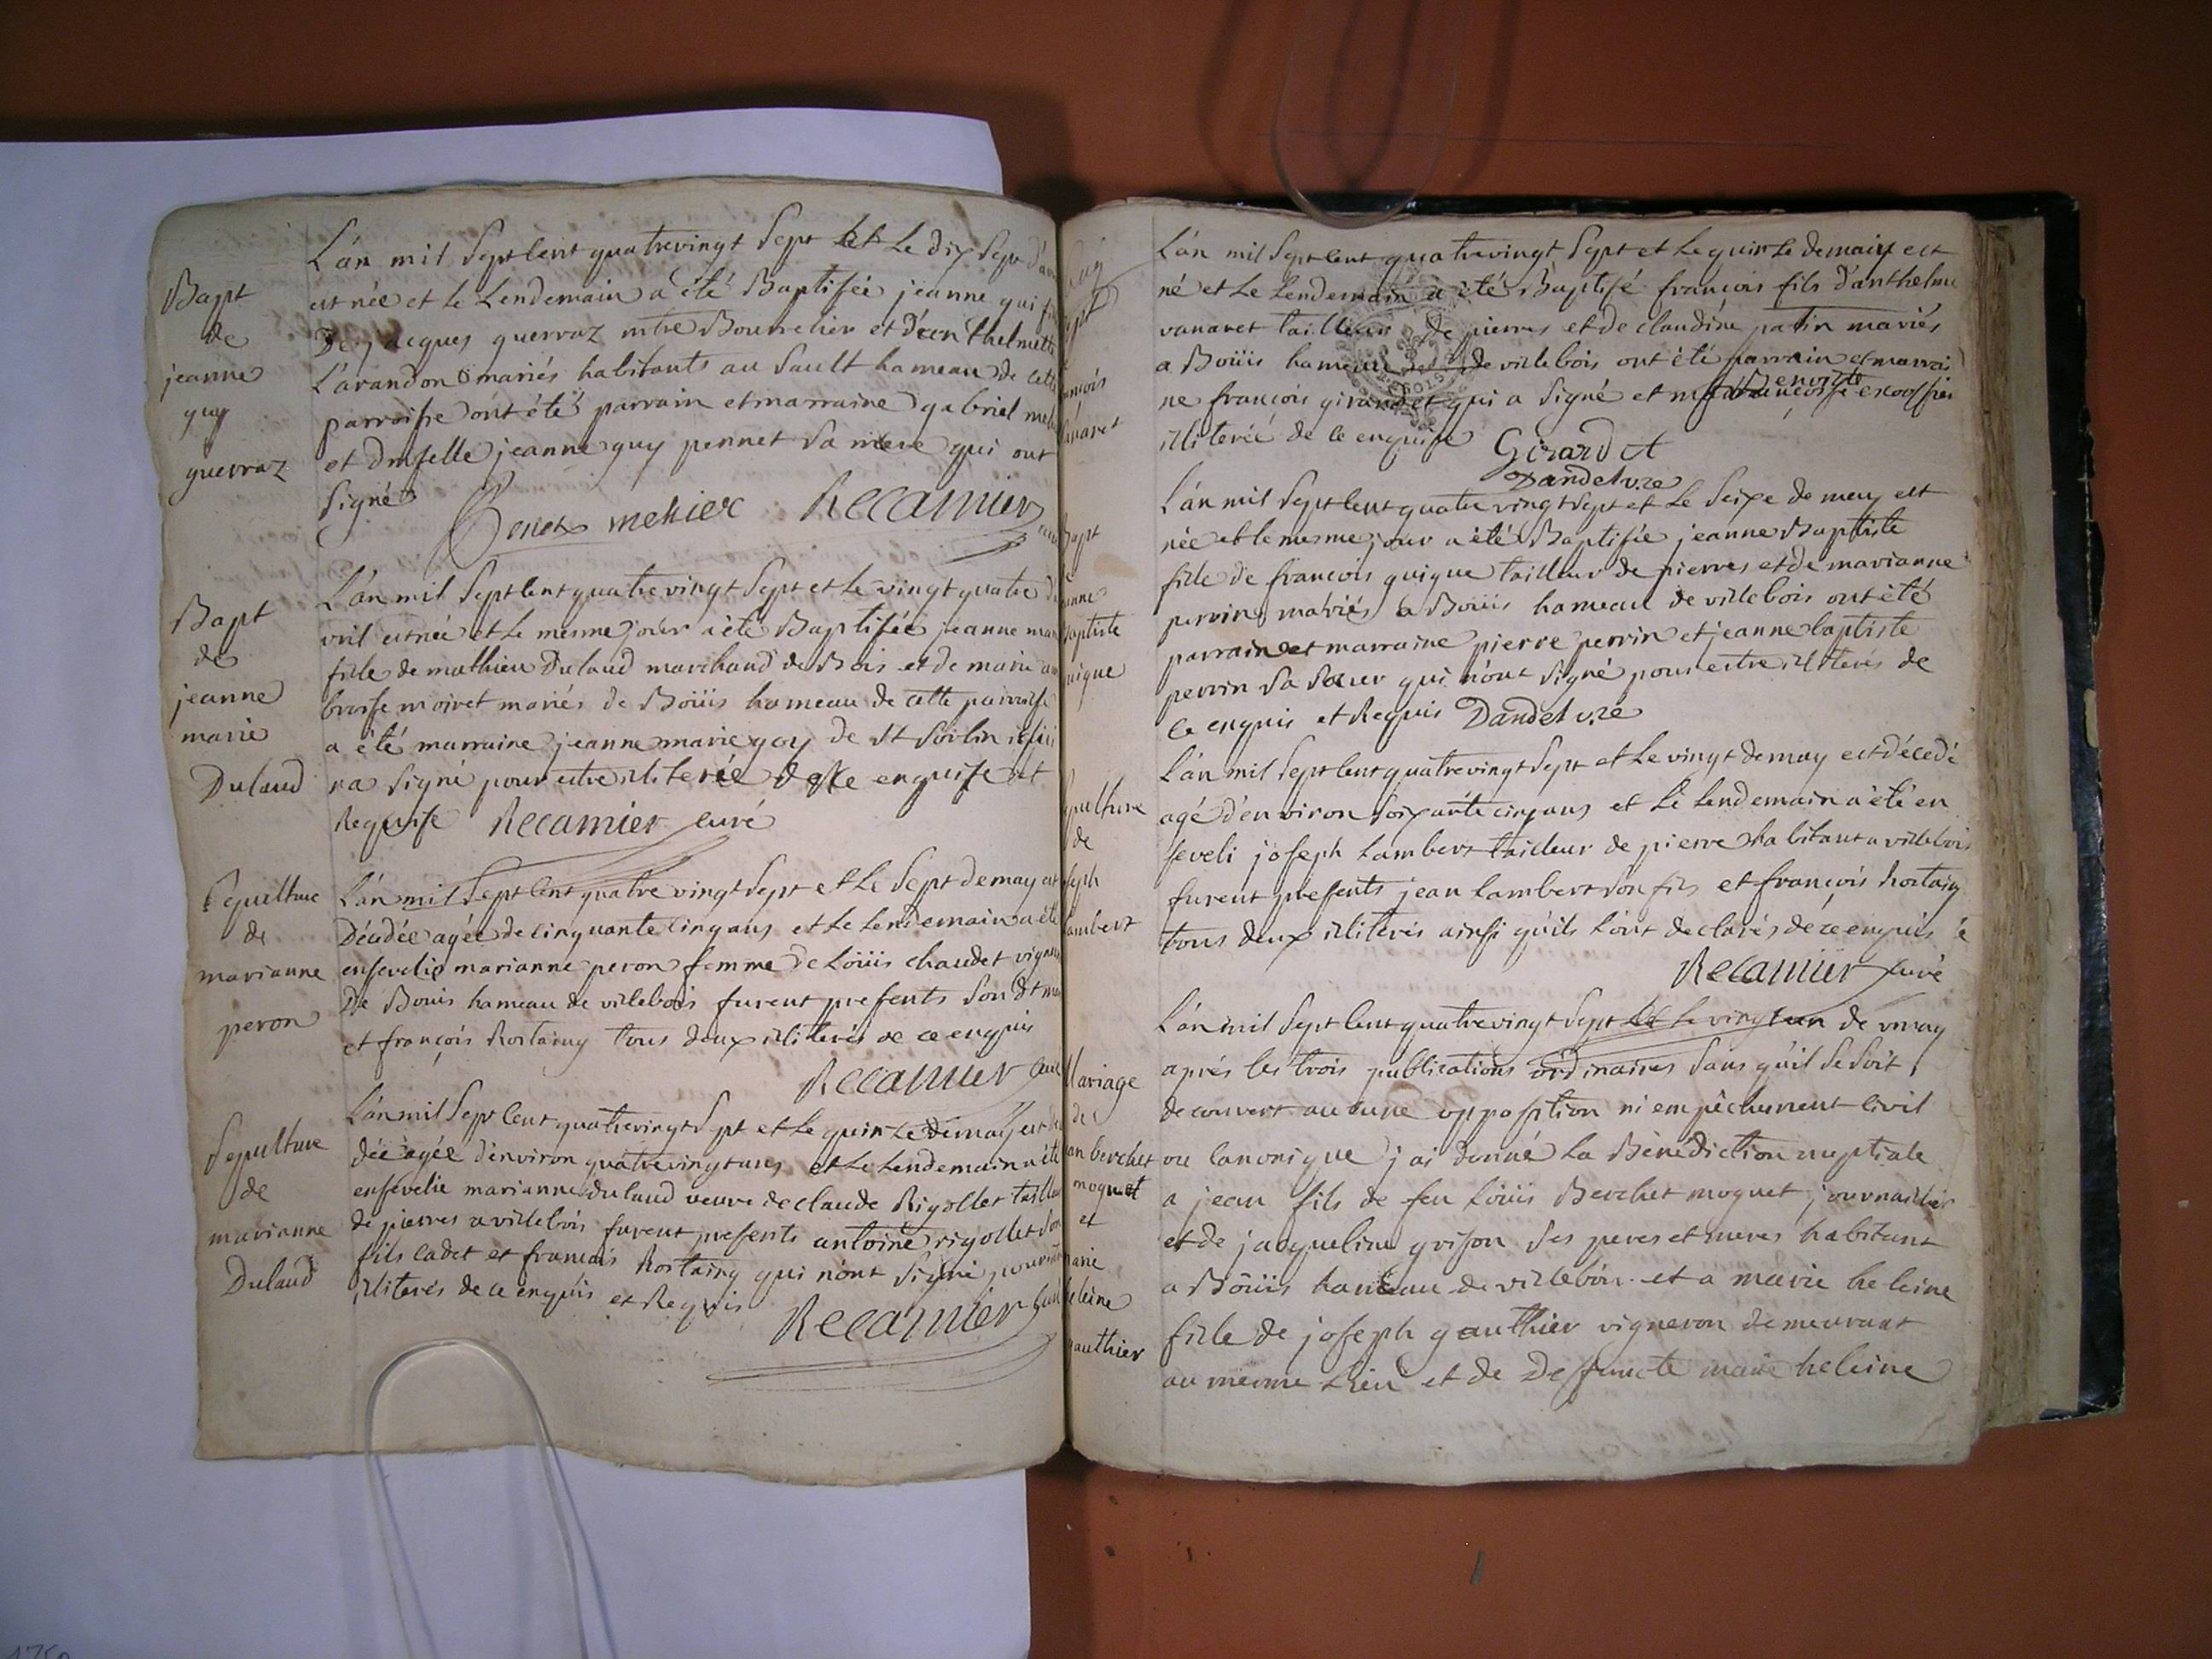 Bapt
de
jeanne
guy
guerraz
L'an mil Sept Cent quatrevingt Sept et Le dix Sept d'av
est née et le Lendemain a été Baptisée jeanne guy fi
De jacques guerraz mtre Bourrelier et d'anthelmette
L'arandon mariés habitants au Sault hameau de cette
parroisse ont été parrain et marraine gabriel me
et dmselle jeanne guy pennet Sa mere qui ont
Signé mehier Recamier
Bapt
de
jeanne
marie
Dulaud
L'an mil Sept Cent quatrevingt Sept et Le vingt quatre d
vril est née et Le mesme jour a été Baptisée jeanne mar
fille de mathieu Dulaud marchand de Bois et de marie am
broise moiret mariés de Boüis hameau de cette parroisse
a été marraine jeanne marie goy de St Sorlin
na Signé pour estre illiterée de ce enquise et
Requise Recamier curé
Sepulture
de
marianne
peron
L'an mil Sept Cent quatre vingt Sept et Le Sept de may est
Décédée agée de cinquante cinq ans et Le Lendemain a été
ensevelie marianne peron femme de Loüis chaudet vigne
De Bouis hameau de villebois furent presents Son dt ma
et françois Rostaing tous deux illiterés de ce enquis
Recamier curé
Sepulture
de
marianne
Dulaud
L'an mil Sept Cent quatrevingt Sept et Le quinze de may est dé
dée agée d'environ quatrevingt ans et Le Lendemain a été
ensevelie marianne dulaud veuve de claude Rigollet taille
de pierres a villebois furent presents antoine rigollet Son
fils cadet et françois Rostaing qui n'ont Signé pour
illiterés de ce enquis et Requis
Recamier curé
L'an mil Sept Cent quatrevingt Sept et Le quinze de may est
né et Le Lendemain a été Baptisé françois fils d'anthelme
vanaret tailleur de pierres et de claudine patin mariés
a Boüis hameau de villebois ont été parrain et marrai
ne françois girardet qui a Signé et
illiterée de ce enquise Girardet
Dandel vre
Bapt
jeanne
Baptiste
guigue
L'an mil Sept Cent quatre vingt Sept et Le Seize de may est
née et le mesme jour a été Baptisée jeanne Baptiste
fille de françois guigue tailleur de pierres et de marianne
perrin mariés a Boüis hameau de villebois ont été
parrain et marraine pierre perrin et jeanne baptiste
perrin Sa Sœur qui n'ont Signé pour estre illiterés de
ce enquis et Requis Dandel vre
Sepulture
de
joseph
Lambert
L'an mil Sept Cent quatrevingt Sept et Le vingt de may est décedé
agé d'environ Soixante cinq ans et Le Lendemain a été en
seveli joseph Lambert tailleur de pierre habitant a villebois
furent presents jean Lambert Son fils et françois Rostaing
tous deux illiterés ainsi qu'ils L'ont declarés de ce enquis
Recamier curé
Mariage
de
jean berchet
moguet
et
marie
heleine
gauthier
L'an mil Sept Cent quatrevingt Sept et Le vingt un de may
aprés les trois publications ordinaires Sans qu'il se Soit
decouvert aucune opposition ni empêchement civil
ou canonique j'ai donné La Bénédiction nuptiale
a jean fils de feu Loüis Berchet moguet journailler
et de jacqueline grison Ses peres et meres habitant
a Boüis hameau de villebois et a marie heleine
fille de joseph gauthier vigneron demeurant
au mesme Lieu et de Deffuncte marie heleine